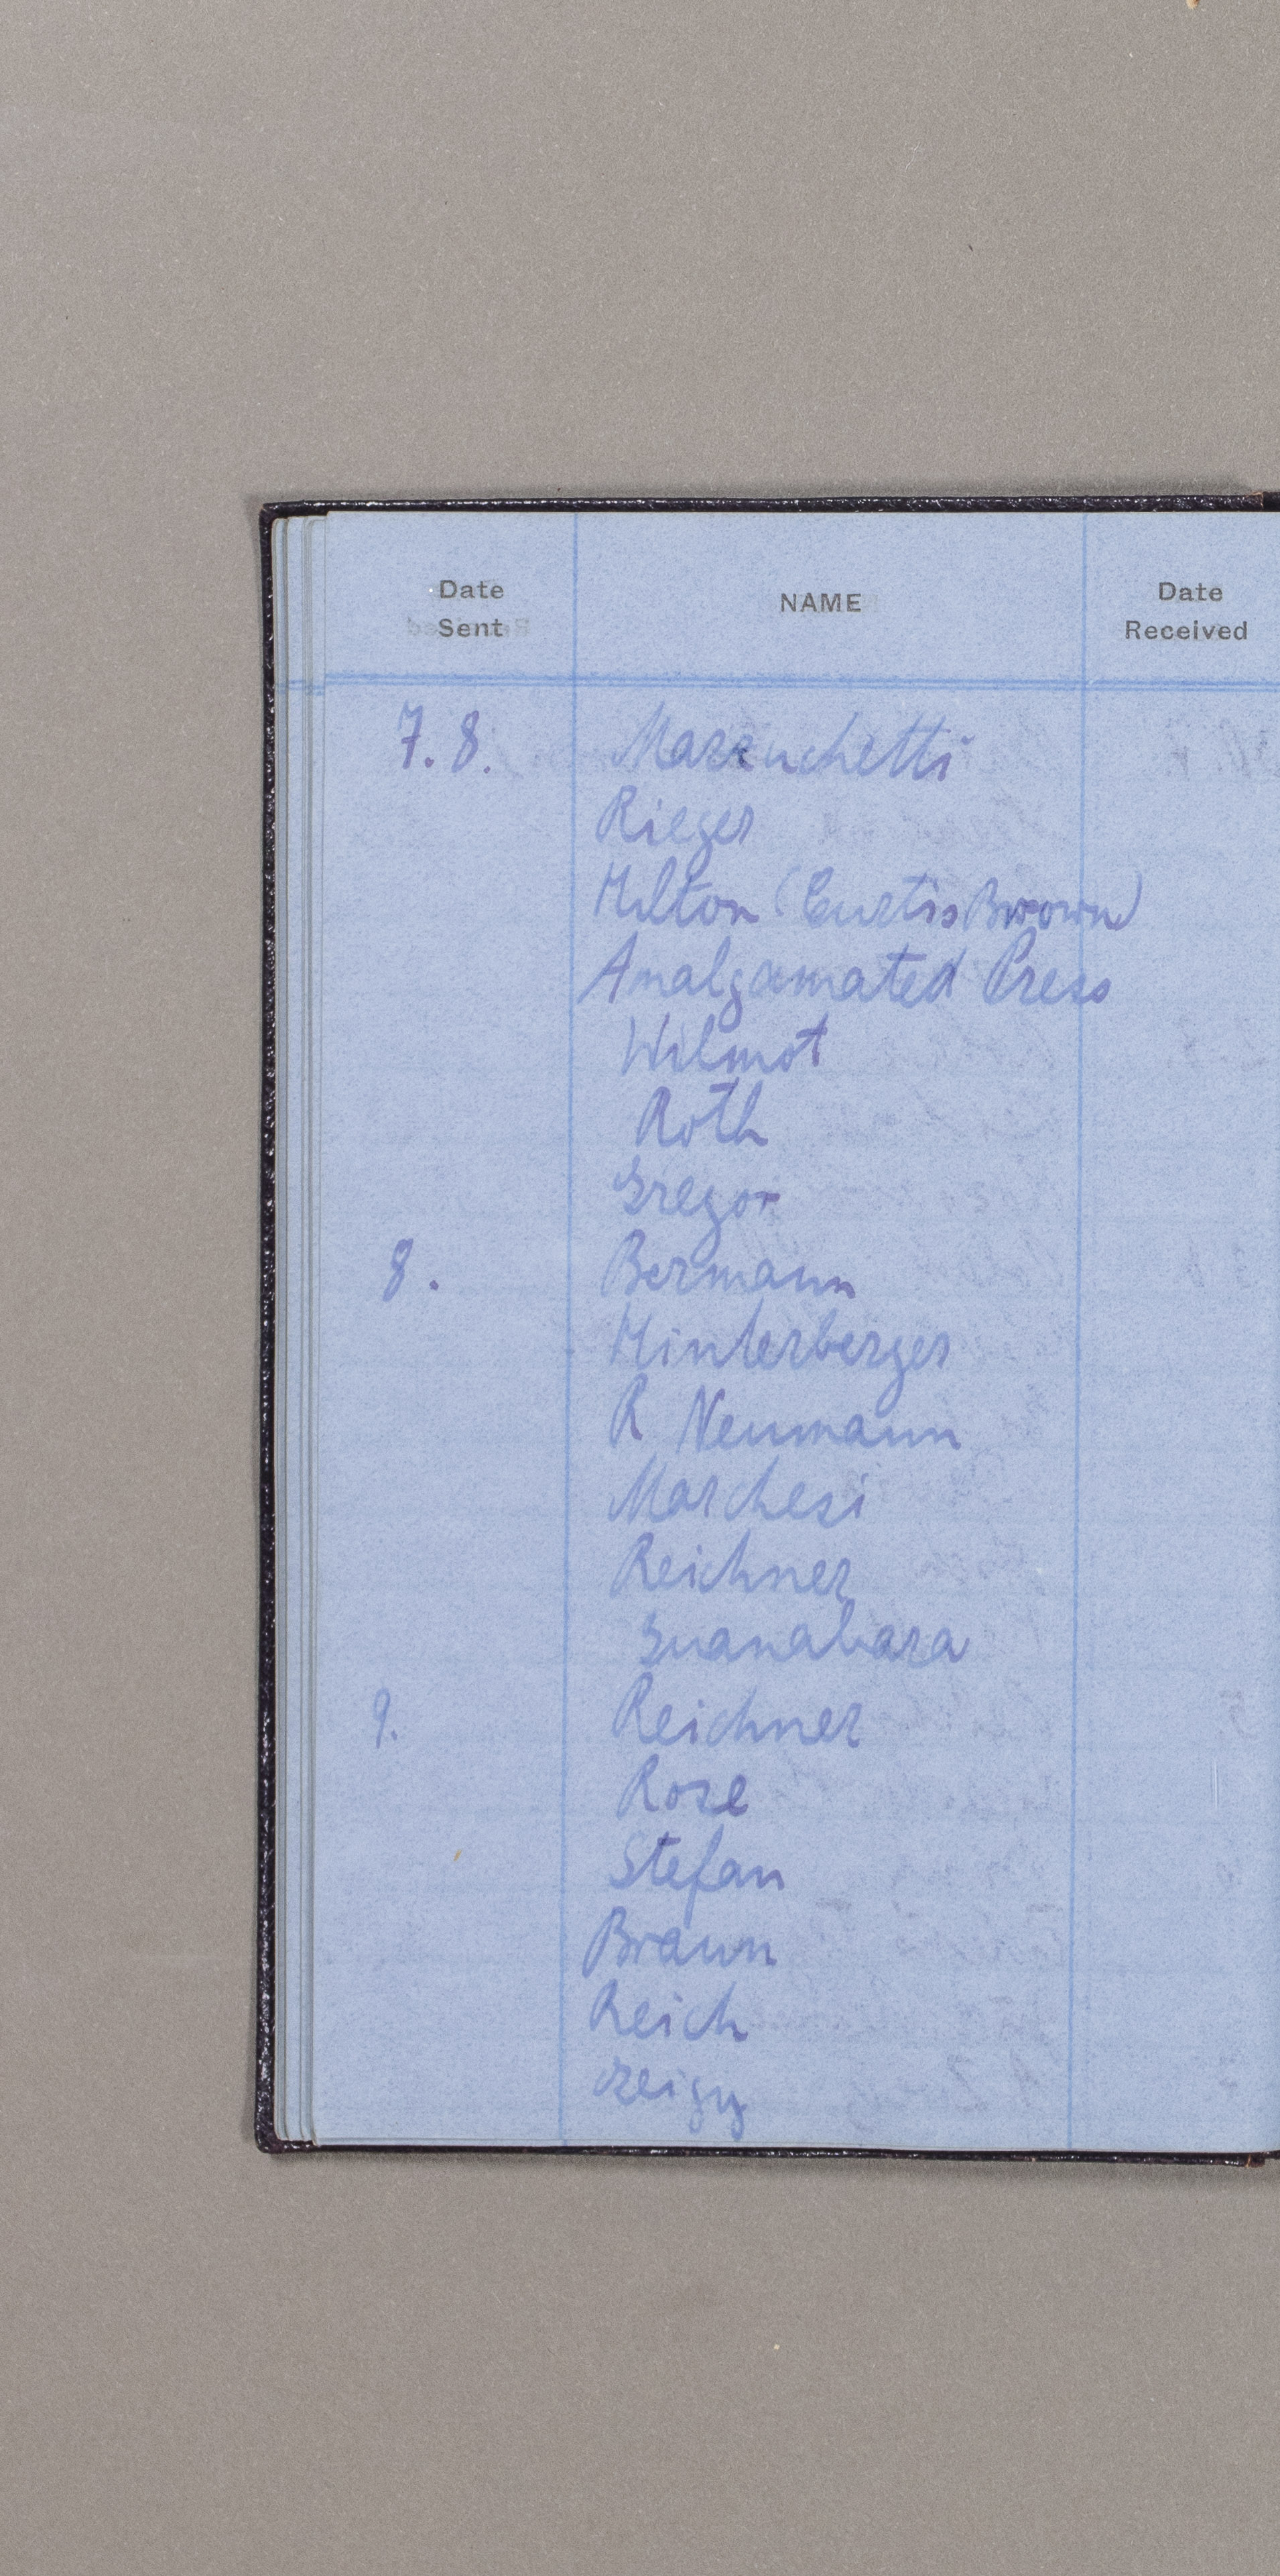 Date Sent NAME Date Received
7.8. Marzuchetti
Rieger
Hilton (Curtis Brown)
Amalgamated Press
Wilmot
Roth
Gregor
8. Bermann
Hinterberger
R Neumann
Marchesi
Reichner
Guanabara
9. Reichner
Rose
Stefan
Braun
Reich
Geigy